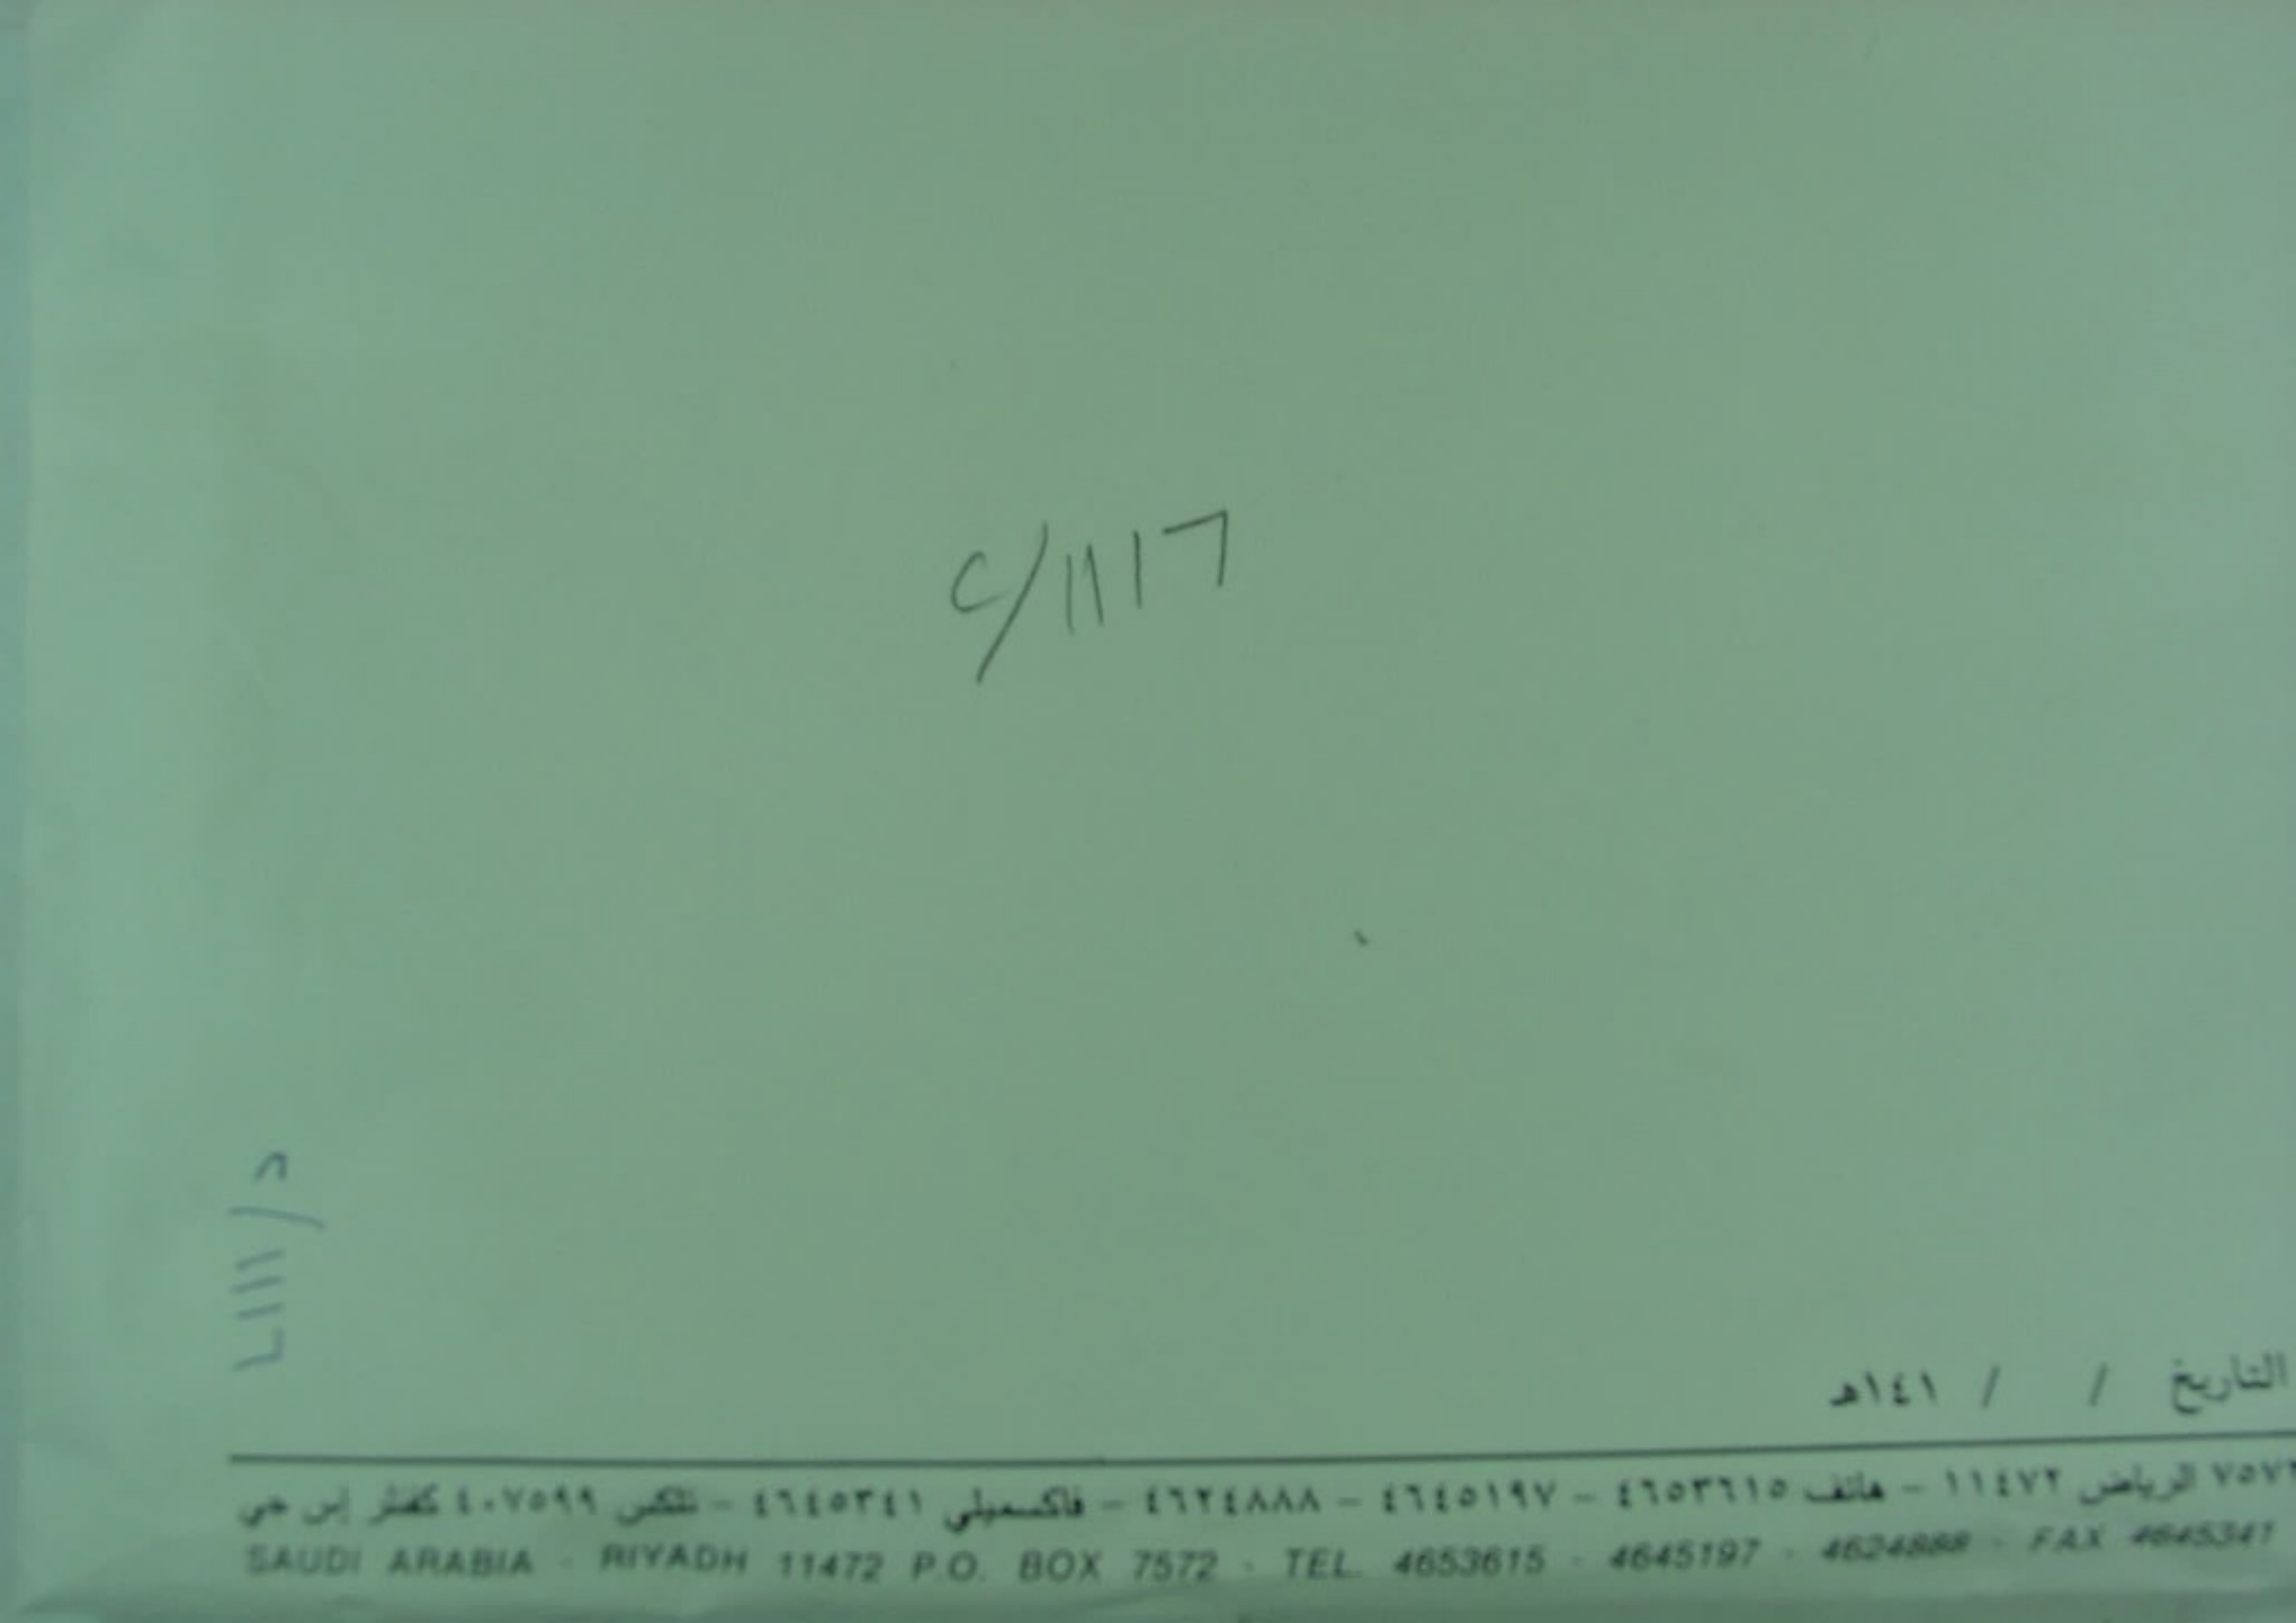 ٢/١١١٦
٢/١١١٦
التاريخ / / ١٤١هـ
الرياض ١١٤٧٢ – هاتف ٤٦٥٣٦١٥ – ٤٦٤٥١٩٧ – ٤٦٢٤٨٨٨ – فاكسميلي ٤٦٤٥٣٤١ – تلكس ٤٠٧٥٩٩ كفنثر إس جي
SAUDI ARABIA - RIYADH 11472 P.O. BOX 7572 - TEL. 4653615 - 4645197 - 4624888 - FAX 4645341